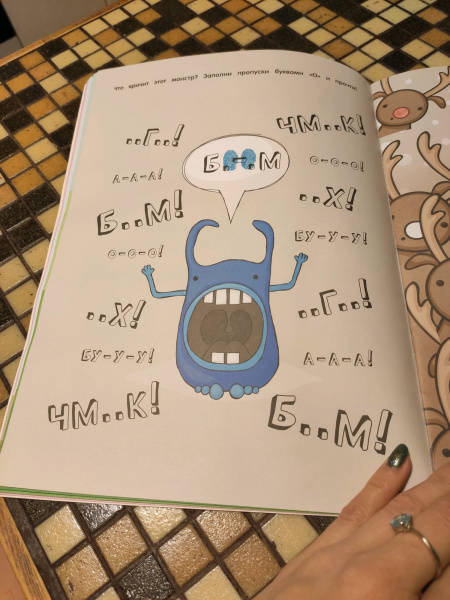 Что кричит этот монстр? Заполни пропуски буквами «О» и прочти!
..Г..!
ЧМ..К!
Б..М
А-А-А!
О-О-О!
Б..М!
..Х!
О-О-О!
БУ-У-У!
..Х!
..Г..!
БУ-У-У!
А-А-А!
ЧМ..К!
Б..М!